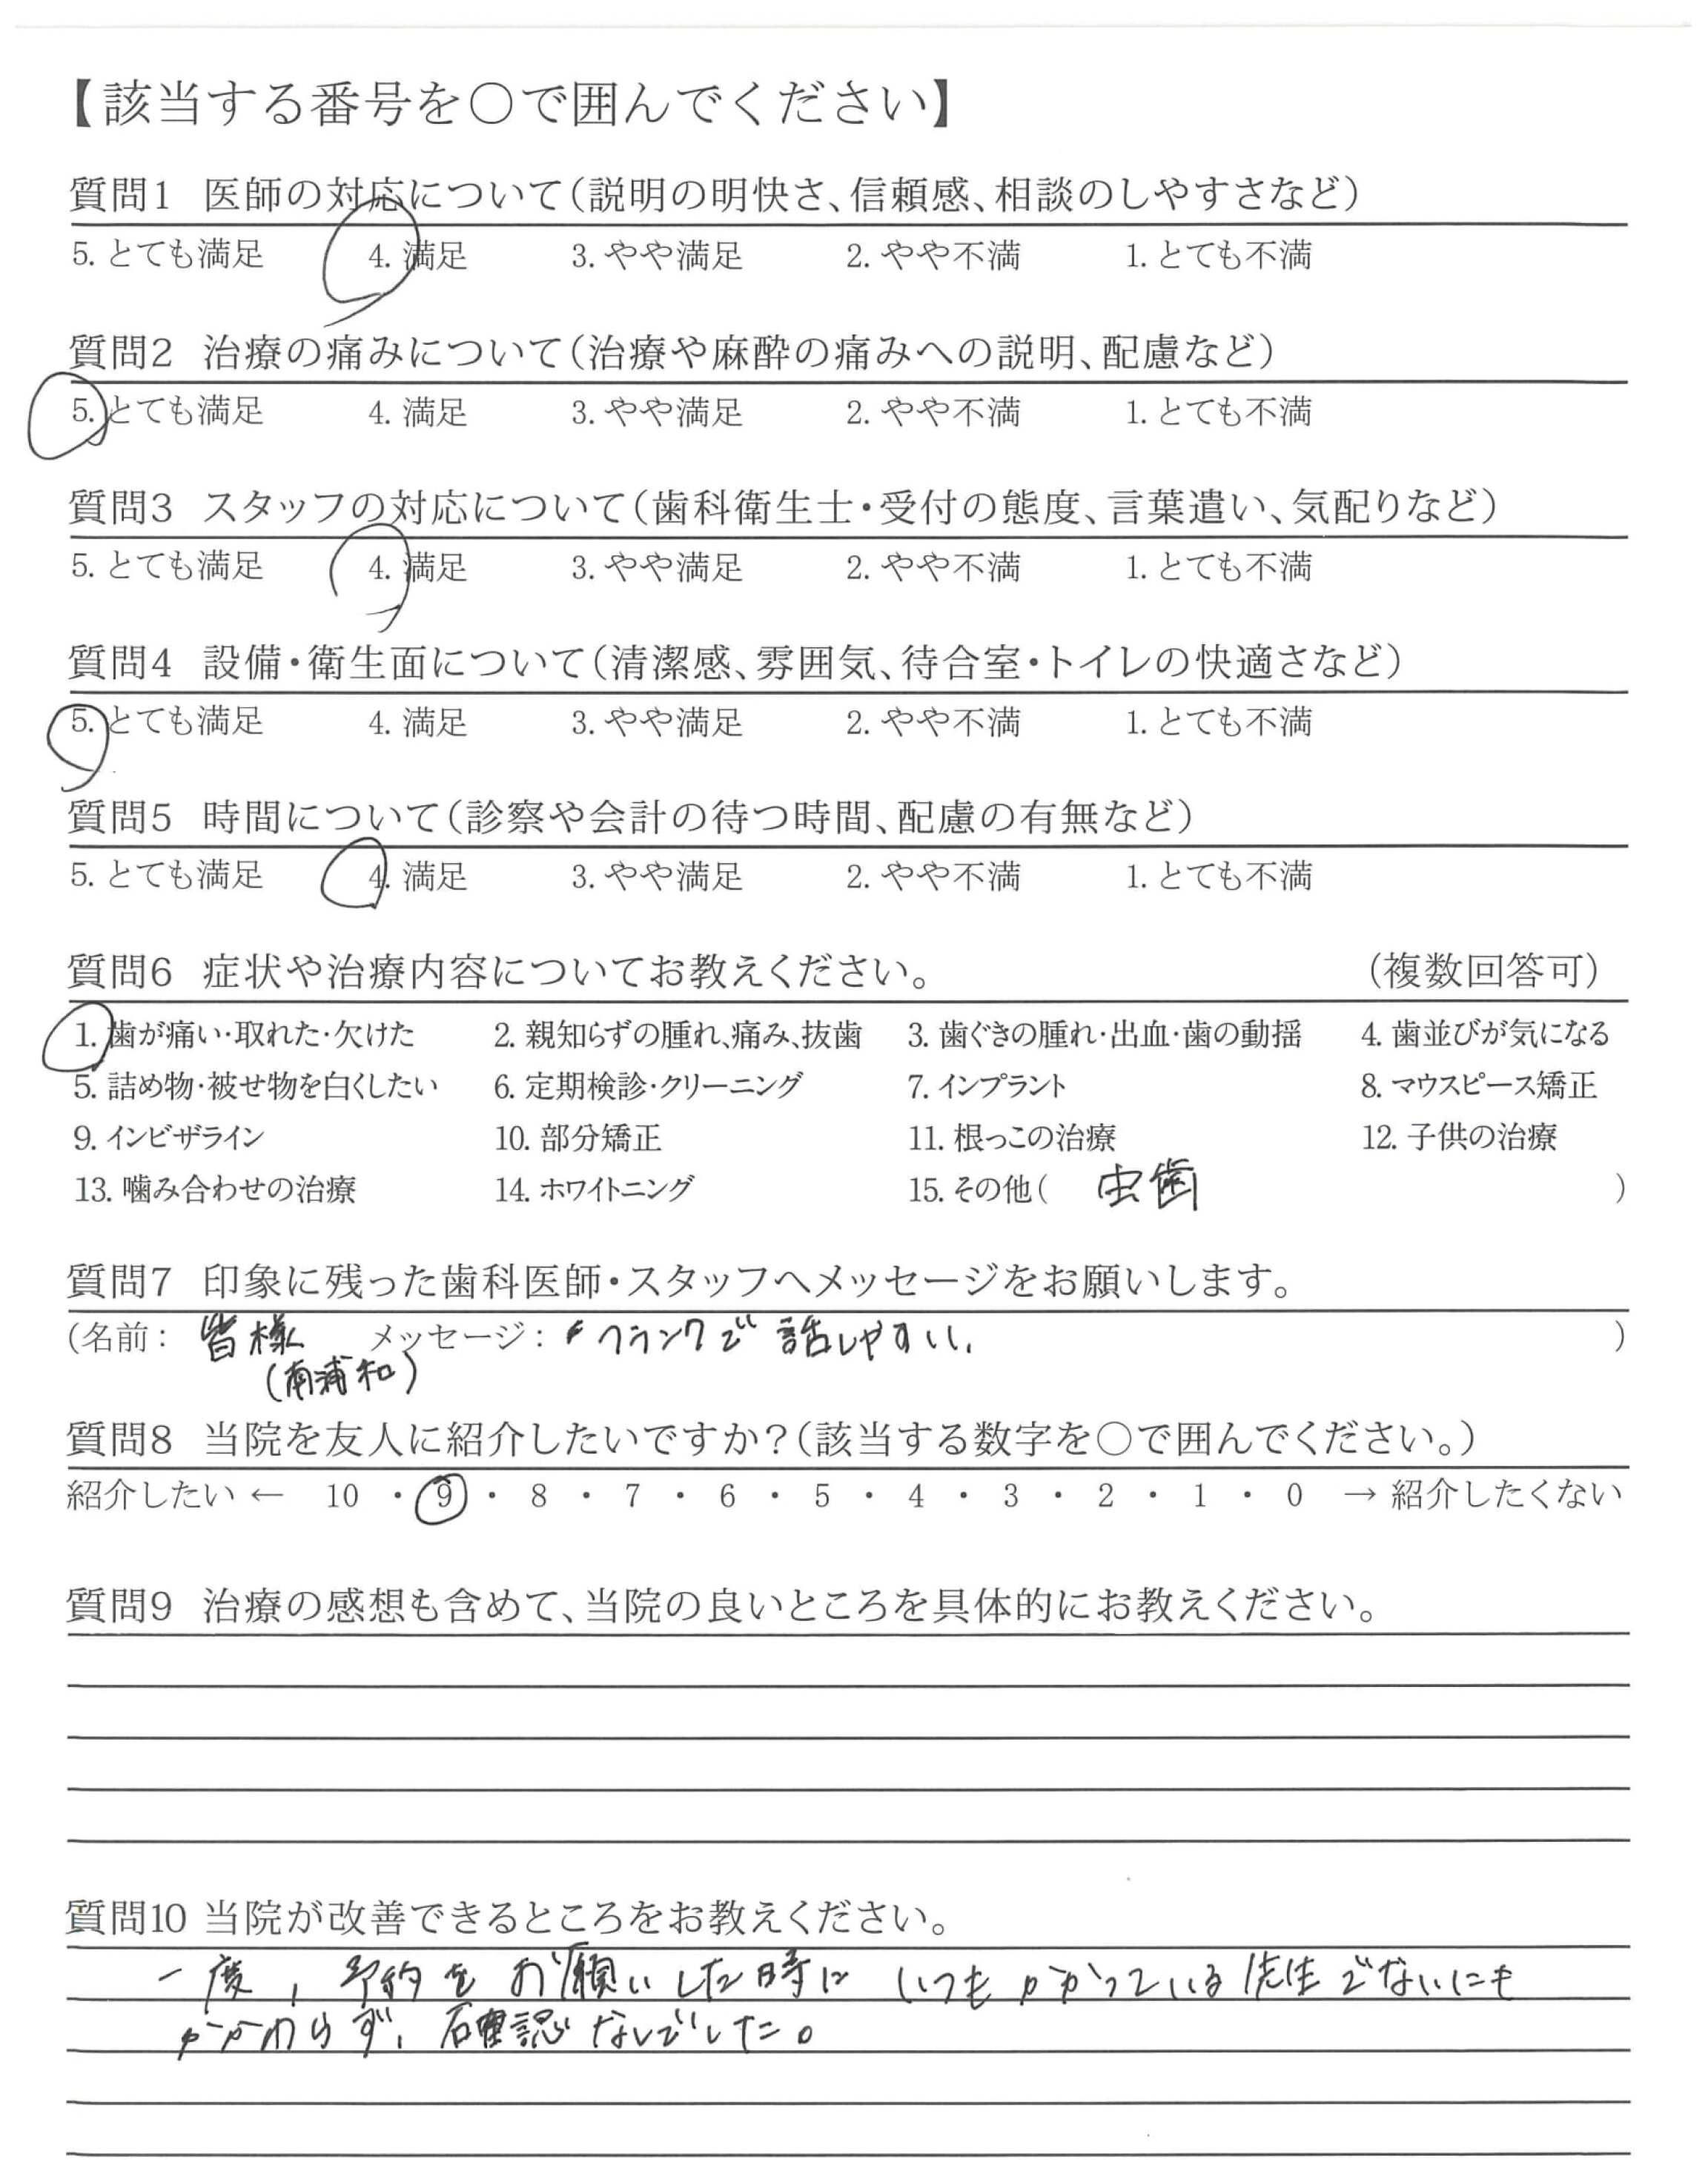 【該当する番号を○で囲んでください】
質問1 医師の対応について(説明の明快さ、信頼感、相談のしやすさなど)
5. とても満足 4. 満足 3. やや満足 2. やや不満 1. とても不満
質問2 治療の痛みについて(治療や麻酔の痛みへの説明、配慮など)
5. とても満足 4. 満足 3. やや満足 2. やや不満 1. とても不満
質問3 スタッフの対応について(歯科衛生士・受付の態度、言葉遣い、気配りなど)
5. とても満足 4. 満足 3. やや満足 2. やや不満 1. とても不満
質問4 設備・衛生面について(清潔感、雰囲気、待合室・トイレの快適さなど)
5. とても満足 4. 満足 3. やや満足 2. やや不満 1. とても不満
質問5 時間について(診察や会計の待つ時間、配慮の有無など)
5. とても満足 4. 満足 3. やや満足 2. やや不満 1. とても不満
質問6 症状や治療内容についてお教えください。 (複数回答可)
1. 歯が痛い・取れた・欠けた 2. 親知らずの腫れ、痛み、抜歯 3. 歯ぐきの腫れ・出血・歯の動揺 4. 歯並びが気になる
5. 詰め物・被せ物を白くしたい 6. 定期検診・クリーニング 7. インプラント 8. マウスピース矯正
9. インビザライン 10. 部分矯正 11. 根っこの治療 12. 子供の治療
13. 噛み合わせの治療 14. ホワイトニング 15. その他( 虫歯 )
質問7 印象に残った歯科医師・スタッフへメッセージをお願いします。
(名前: 皆様 メッセージ: フランクで話しやすい。 )
(南浦和)
質問8 当院を友人に紹介したいですか?(該当する数字を○で囲んでください。)
紹介したい ← 10 ・ 9 ・ 8 ・ 7 ・ 6 ・ 5 ・ 4 ・ 3 ・ 2 ・ 1 ・ 0 → 紹介したくない
質問9 治療の感想も含めて、当院の良いところを具体的にお教えください。
質問10 当院が改善できるところをお教えください。
一度、予約をお願いした時にいつもかかっている先生でないにも
かかわらず、確認なしでした。